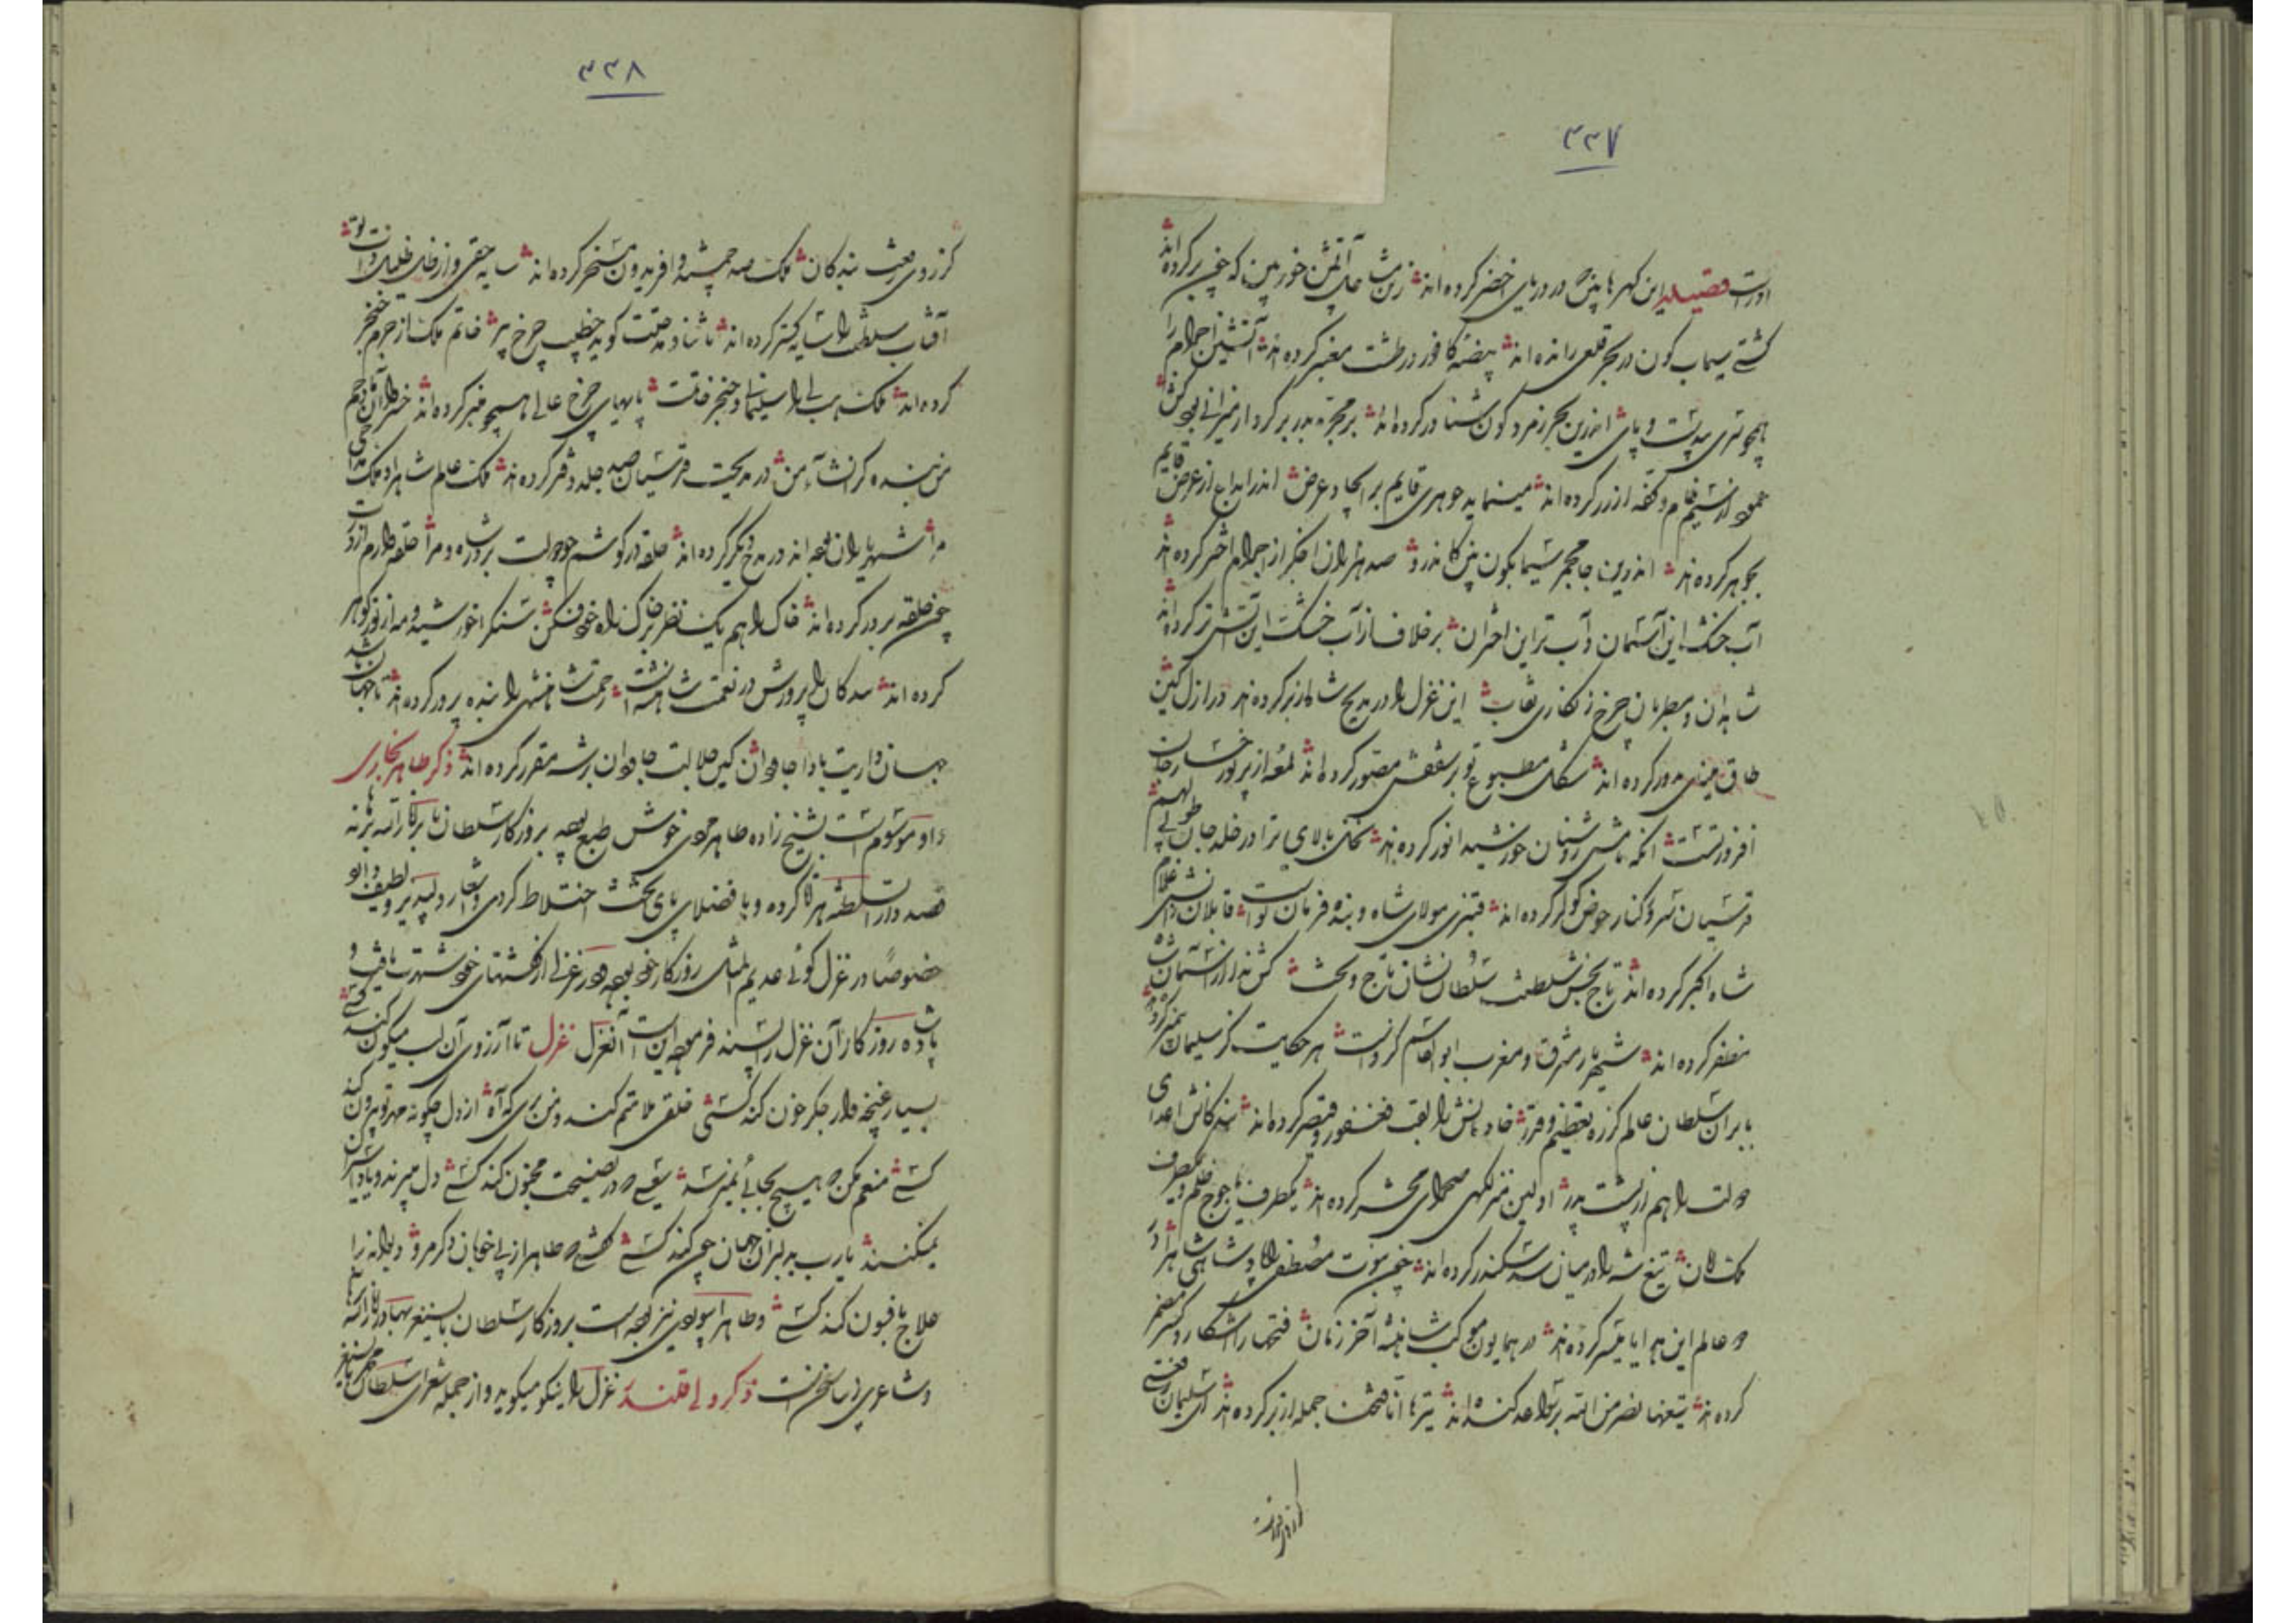 ۳۳۷
اوراست قصیده این گهرها بین که در دریای اخضر کرده اند زین مشاعل آتشین خور بین که چون بر کرده اند
کشتی سیماب گون در بحر قلعی رانده اند بیضه کافور در طشت معنبر کرده اند آتشین اجرام را
همچو نسری بی پشت و پای اندرین بحر زمرد گون شناور کرده اند بر مجره بدر بر کردار میزانی بود کش
عمود از سیم خام و کفه از زر کرده اند مینماید جوهری قایم بر ایجاد عرض اندر ابداع از عرض قایم
بجوهر کرده اند اندرین جامجمر سیمابگون بین کاندرو صد هزاران اخگر از اجرام اختر کرده اند
آب خشک این آسمان و آب تر این اختران بر خلاف از آب خشک این آتش تر کرده اند
شاهدان و مطربان چرخ زنگاری نقاب این غزل را در مدیح شاه از بر کرده اند در ازل کین
طاق مینای مدور کرده اند شکل مطبوع تو بر سقفش مصور کرده اند لمعه از پرتو رخسار جان
افروز تست آنکه نامش روشنان خورشید انور کرده اند نخل بالای ترا در خلد جان طوبی لهم
قدسیان سرو کنار حوض کوثر کرده اند قنبری مولای شاه و بنده فرمان تو است قابلان دانش غلام
شاه اکبر کرده اند تاج بخش سلطنت سلطان نشان تاج و تخت کش ندا از آسمان شاه
مظفر کرده اند شهریار مشرق و مغرب ابوالقاسم کزوست هر حکایت کز سلیمان پیمبر کرده اند
بابر آن سلطان عالم کز ره تعظیم و قدر خادمانش را لقب فغفور و قیصر کرده اند بندگانش اعدای
دولت را هم از پشت پدر اولین منزلگهی صحرای محشر کرده اند یکطرف یأجوج ظلم و یکطرف
ملک امان تیغ شه را در میان سد سکندر کرده اند چون نبوت مصطفی را پادشاهی شاه را در
دو عالم این هدایا میسر کرده اند در همایون موکب شاهنشه آخر زمان فتحها را آشکارا و کسر مضمر
کرده اند تیغها نصر من الله بر سواعد کنده اند تیرها انا فتحنا جمله از بر کرده اند ای سلیمان حشمتی
۳۳۸
کز روی رفعت بندگان ملک صد جمشید و افریدون مسخر کرده اند سایه حقی و از رفان ظلمات
آفتاب سلطنت را سایه گستر کرده اند تا ثنا و مدحتت گوید خطیب چرخ پیر خاتم ملک از جرم خنجر
کرده اند ملک بی را سلیمانی و خنجر خاتمت پایهای چرخ عالی همچو منبر کرده اند خسروا آن
من بنده کز انشاء من در مدیحت قدسیان صد جلد دفتر کرده اند ملک عالم شاه راد و ملک مداحی
مرا شهریاران بوده اند در مدح دیگر کرده اند حلقه در گوشم چو دولت بر در شاه و مرا حلقه دارم
چون حلقه بر در کرده اند خاک را هم یک نظر بر خاک راه خود فکن سنگرا خورشید و مه از نور گوهر
کرده اند بندگان را پرورش در نعمت شاهنشه است رحمت شاهنشهی را بنده پرور کرده اند تا جهان باشد
جهان داریت بادا جاودان کین جلالت جاودان بر شه مقرر کرده اند ذکر طاهر بخاری
و او موسوم است بشیخ زاده طاهر مردی خوش طبع بوده بروزگار سلطان بابر
قصد دار السلطنه هراة کرده و با فضلای پای تخت اختلاط کردی و اشعار دلپذیر و لطیف دارد
خصوصا در غزل گوئی عدیم المثل روزگار خود بوده و در غزلی از گفتهای خود شهرت یافت و
پادشاه روزگار آن غزل را پسند فرموده این است آنغزل غزل تا آرزوی آن لب میگون کند کسی
بسیار غنچه وار جگر خون کند کسی خلقی ملامتم کند و من بر این که آه از دل چگونه مهر تو بیرون کند
کسی منعم مکن که هیچ بجائی نمیرسد سعی که در نصیحت مجنون کند کسی دل میبرند و یاد اسیران
نمیکنند یارب بدلبران جهان چون کند کسی گفتی که طاهر از پی خوبان دگر مرو دیوانه را
علاج بافسون کند کسی و طاهر ابیوردی نیز بوده است بروزگار سلطان بایسنغر بهادر
و شاعری زیبا سخن است ذکر ولی قلندر غزل را نیکو میگوید و از جمله شعرای سلطان محمد بایسنغر